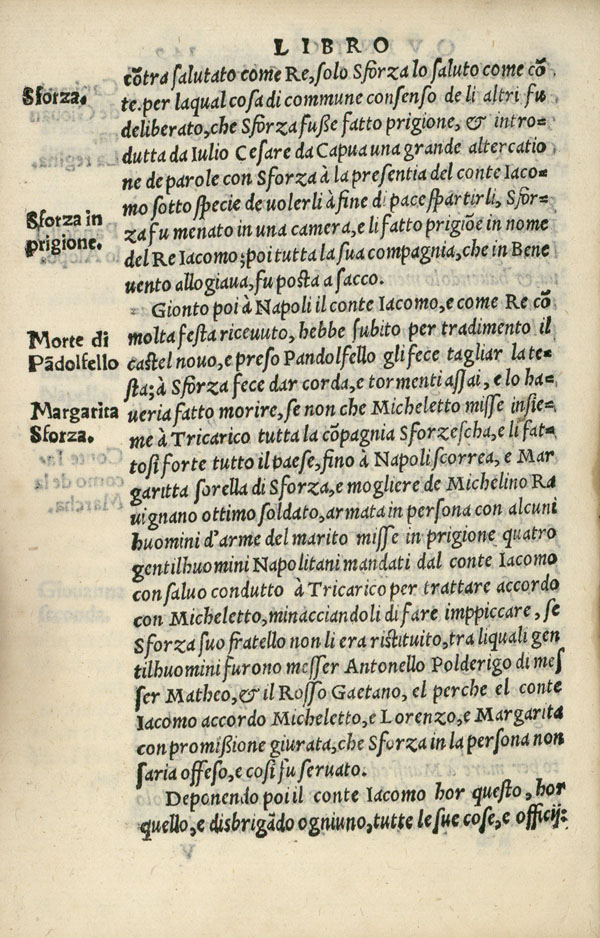 LIBRO
Sforza.
cõtra salutato come Re, solo Sforza lo saluto come cõ
te. per laqual cosa di commune consenso de li altri fu
deliberato, che Sforza fuße fatto prigione, & intro-
dutta da Iulio Cesare da Capua una grande altercatio
ne de parole con Sforza à la presentia del conte Iaco-
mo sotto specie de uolerli à fine di pace spartirli, Sfor-
Sforza in
prigione.
za fu menato in una camera, e li fatto prigiõe in nome
del Re Iacomo; poi tutta la sua compagnia, che in Bene
uento alloggiaua, fu posta a sacco.
Gionto poi à Napoli il conte Iacomo, e come Re cõ
Morte di
Pãdolfello
molta festa riceuuto, hebbe subito per tradimento il
castel nouo, e preso Pandolfello gli fece tagliar la te-
sta; à Sforza fece dar corda, e tormenti assai, e lo ha-
Margarita
Sforza.
ueria fatto morire, se non che Micheletto misse insie-
me à Tricarico tutta la cõpagnia Sforzescha, e li fat-
tosi forte tutto il paese, fino à Napoli scorrea, e Mar
garitta sorella di Sforza, e mogliere de Michelino Ra
uignano ottimo soldato, armata in persona con alcuni
huomini d'arme del marito misse in prigione quatro
gentilhuomini Napolitani mandati dal conte Iacomo
con saluo condutto à Tricarico per trattare accordo
con Micheletto, minacciandoli di fare imppiccare, se
Sforza suo fratello non li era ristituito, tra liquali gen
tilhuomini furono messer Antonello Polderigo di mes
ser Matheo, & il Rosso Gaetano, el perche el conte
Iacomo accordo Micheletto, e Lorenzo, e Margarita
con promißione giurata, che Sforza in la persona non
saria offeso, e cosi fu seruato.
Deponendo poi il conte Iacomo hor questo, hor
quello, e disbrigãdo ogniuno, tutte le sue cose, e officij: